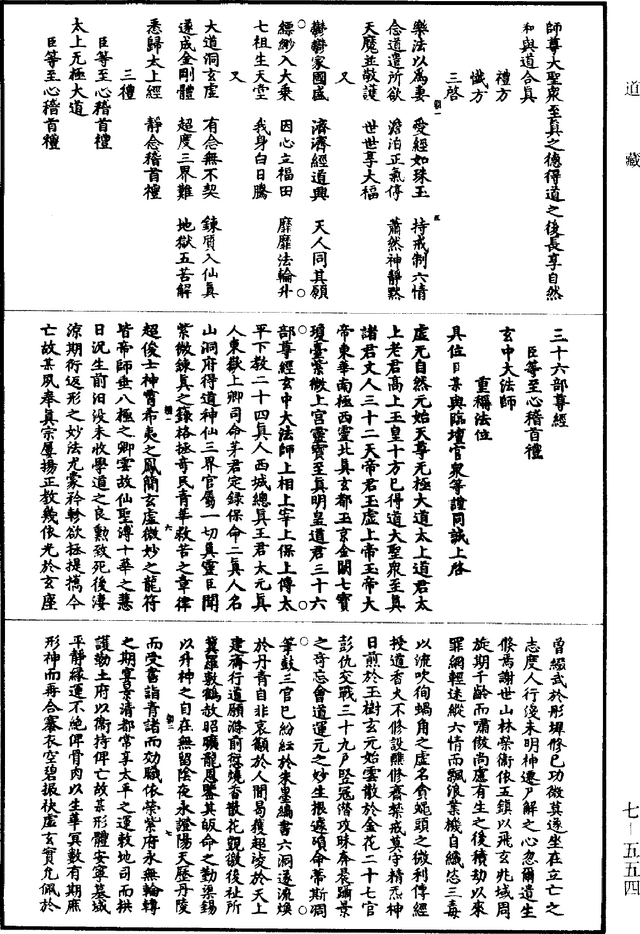 道藏
師尊大聖衆至真之德得道之後長享自然
和與道合真
禮方
懺方
三啓
樂法以爲妻 愛經如珠玉 持戒制六情
念道遣所欲 澹泊正氣停 蕭然神靜默
天魔並敬護 世世享大福
又
鬱鬱家國盛 濟濟經道興 天人同其願
縹緲入大乘 因心立福田 靡靡法輪升
七祖生天堂 我身白日騰
又
大道洞玄虛 有念無不契 鍊質入仙真
遂成金剛體 超度三界難 地獄五苦解
悉歸太上經 靜念稽首禮
三禮
臣等至心稽首禮
太上无極大道
臣等至心稽首禮
三十六部尊經
臣等至心稽首禮
玄中大法師
重稱法位
具位臣某與臨壇官衆等謹同誠上啓
虛元自然元始天尊无極大道太上道君太
上老君高上玉皇十方已得道大聖衆至真
諸君丈人三十二天帝君玉虛上帝玉帝大
帝東華南極西靈北真玄都玉京金闕七寶
瓊臺紫微上宮靈寶至真明皇道君三十六
部尊經玄中大法師上相上宰上保上傅太
平下教二十四真人西城總真王君太元真
人東嶽上卿司命茅君定錄保命二真人名
山洞府得道神仙三界官屬一切真靈臣聞
紫微鍊真之籙格拯奇民青華救苦之章律
超俊士神霄希夷之鳳簡玄虛微妙之龍符
皆帝師垂八極之卿雲故仙聖溥十華之慧
日況生前汨没未收學道之良勳致死後淒
涼期衍返形之妙法尤蒙矜軫欲拯提攜今
亡故某夙奉真宗屢揚正教幾依光於玄座
曾綴武於彤墀修已功微莫遂坐在立亡之
志度人行淺未明神遷尸解之心忽爾遺生
倏焉謝世山林榮衛依五鎮以飛玄兆域周
旋期千齡而嘯傲尚慮有生之後積劫以來
罪網輕迷縱六情而飄浪業機自織恣三毒
以流吹徇蝸角之虛名貪蠅頭之微利傳經
授道香火不修設醮修齋禁戒莫守精炁神
日煎於玉樹玄元始雲散於金花二十七官
彭仇交戰三十九戶堅冠潛攻昧奔裴躡景
之奇忘會道運元之妙生摄違頃命蒂斯凋
筆敖三官已紛紜於朱墨編書六洞遂流煥
於丹青自非哀籲於人間曷獲超凌於天上
建齋行道願游前愆燒香散花覬徼後祉所
冀羅敷鶴赦昭曠龍恩鑒其皈命之勤渠錫
以升神之自在無留陰夜永證陽天歷丹陵
而受書詣青諸而効職依榮紫府永無輪轉
之期寄景清都常享太平之運敕地司而拱
護勒土府以衛持俾亡故某形體安寧墓域
平靜緣運不絶俾骨肉以生華冥數有期庶
形神而再合褰衣空碧振袂虛玄實允佩於
七—五五四